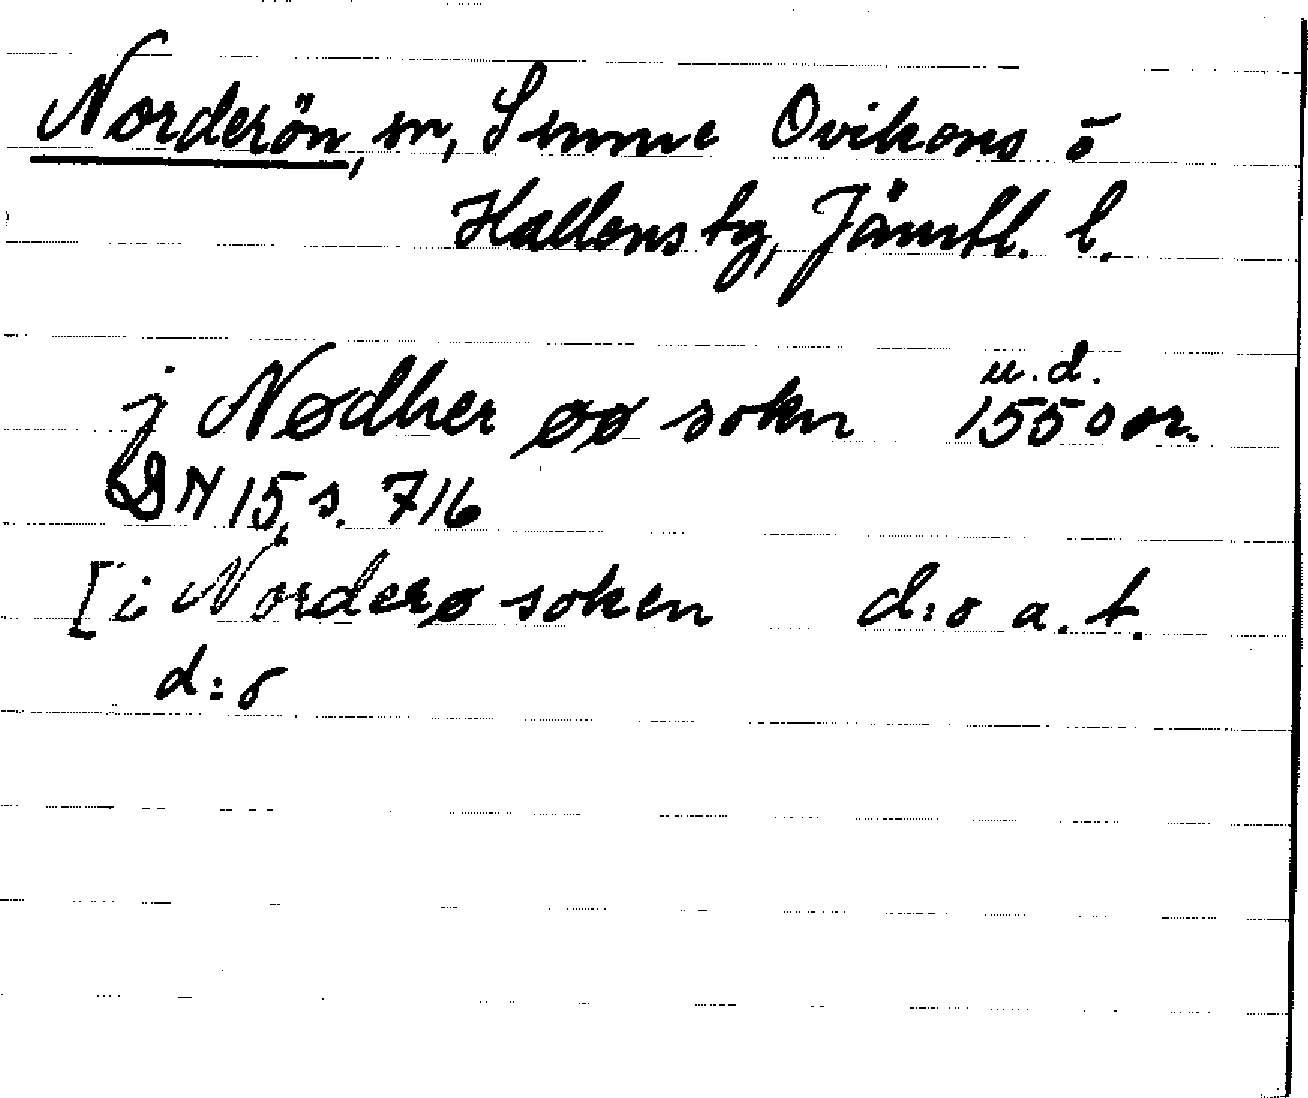 Norderön, sn, Sunne Ovikens o
Hallens tg, Jämtl. l.
j Nødher øø sokn u.d. 1550 or.
DN 15, s. 716
[i Norderø soken d:o a. t.
d:o